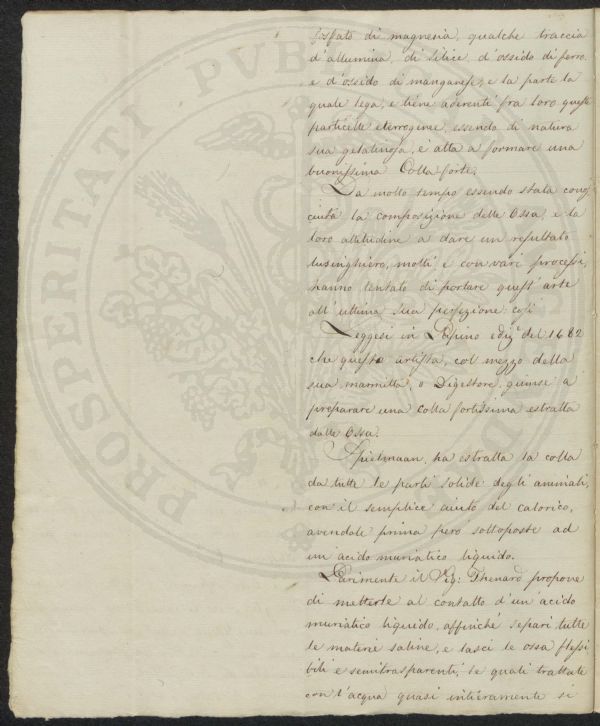 fosfato di magnesia, qualche traccia
d'allumina, di silice, d'ossido di ferro
e d'ossido di manganese, e la parte la
quale lega, e tiene aderenti fra loro queste
particelle eterrogenie, essendo di natura
sua gelatinosa, è atta a formare una
buonissima Colla forte.
Da molto tempo essendo stata conos
ciuta la composizione delle Ossa, e la
loro attitudine a dare un resultato
lusinghiero, molti e con vari processi,
hanno tentato di portare quest'arte
all'ultima sua perfezione: così
Leggesi in Papino ediz. del 1682
che questo artista, col mezzo della
sua marmitta, o Digestore, giunse a
preparare una colla fortissima estratta
dalle Ossa.
Spielmaan, ha estratta la colla
da tutte le parti solide degli animali,
con il semplice aiuto del calorico,
avendole prima però sottoposte ad
un'acido muriatico liquido.
Parimente il Sig: Thenard propone
di metterle al contatto d'un'acido
muriatico liquido, affinché separi tutte
le materie saline, e lasci le ossa flessi
bili e semitrasparenti, le quali trattate
con l'acqua quasi intieramente si
PROSPERITATI PVB